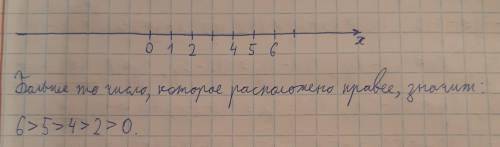 0 1 2 4 5 6 x
Больше то число, которое расположено правее, значит:
6>5>4>2>0.